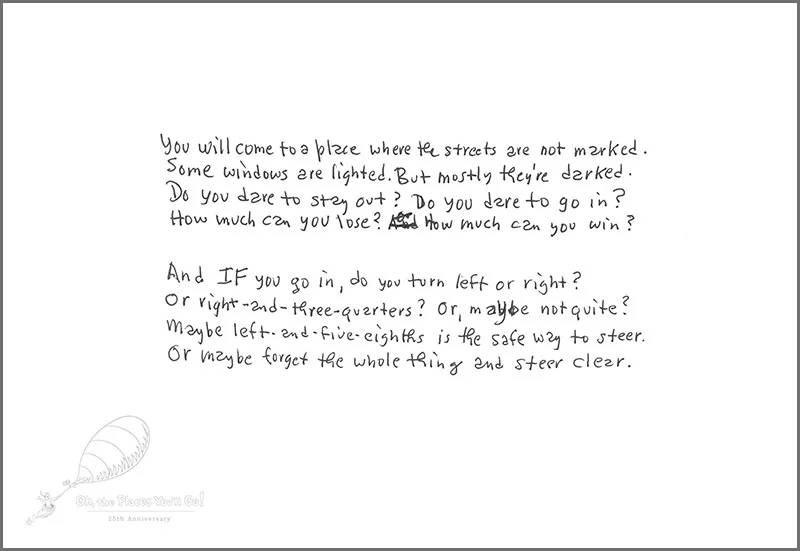 You will come to a place where the streets are not marked.
Some windows are lighted. But mostly they're darked.
Do you dare to stay out? Do you dare to go in?
How much can you lose? How much can you win?
And IF you go in, do you turn left or right?
Or right-and-three-quarters? Or, maybe not quite?
Maybe left-and-five-eighths is the safe way to steer.
Or maybe forget the whole thing and steer clear.
Oh, the Places You'll Go!
25th Anniversary